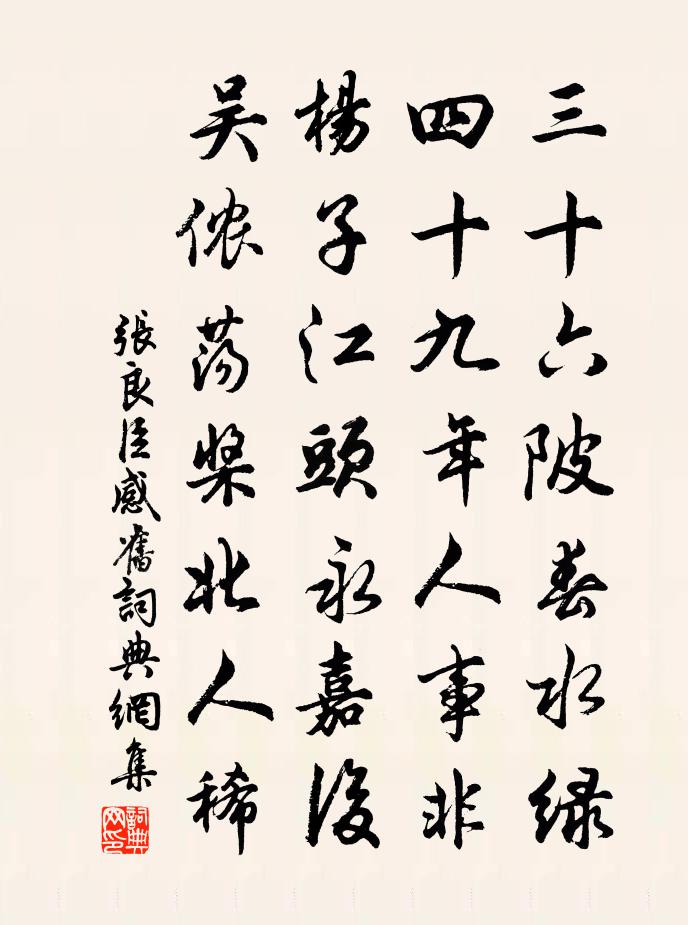 三十六陂春水緑
四十九年人事非
楊子江頭永嘉後
吴侬荡桨北人稀
張良臣感舊詞典網集
詞典网印